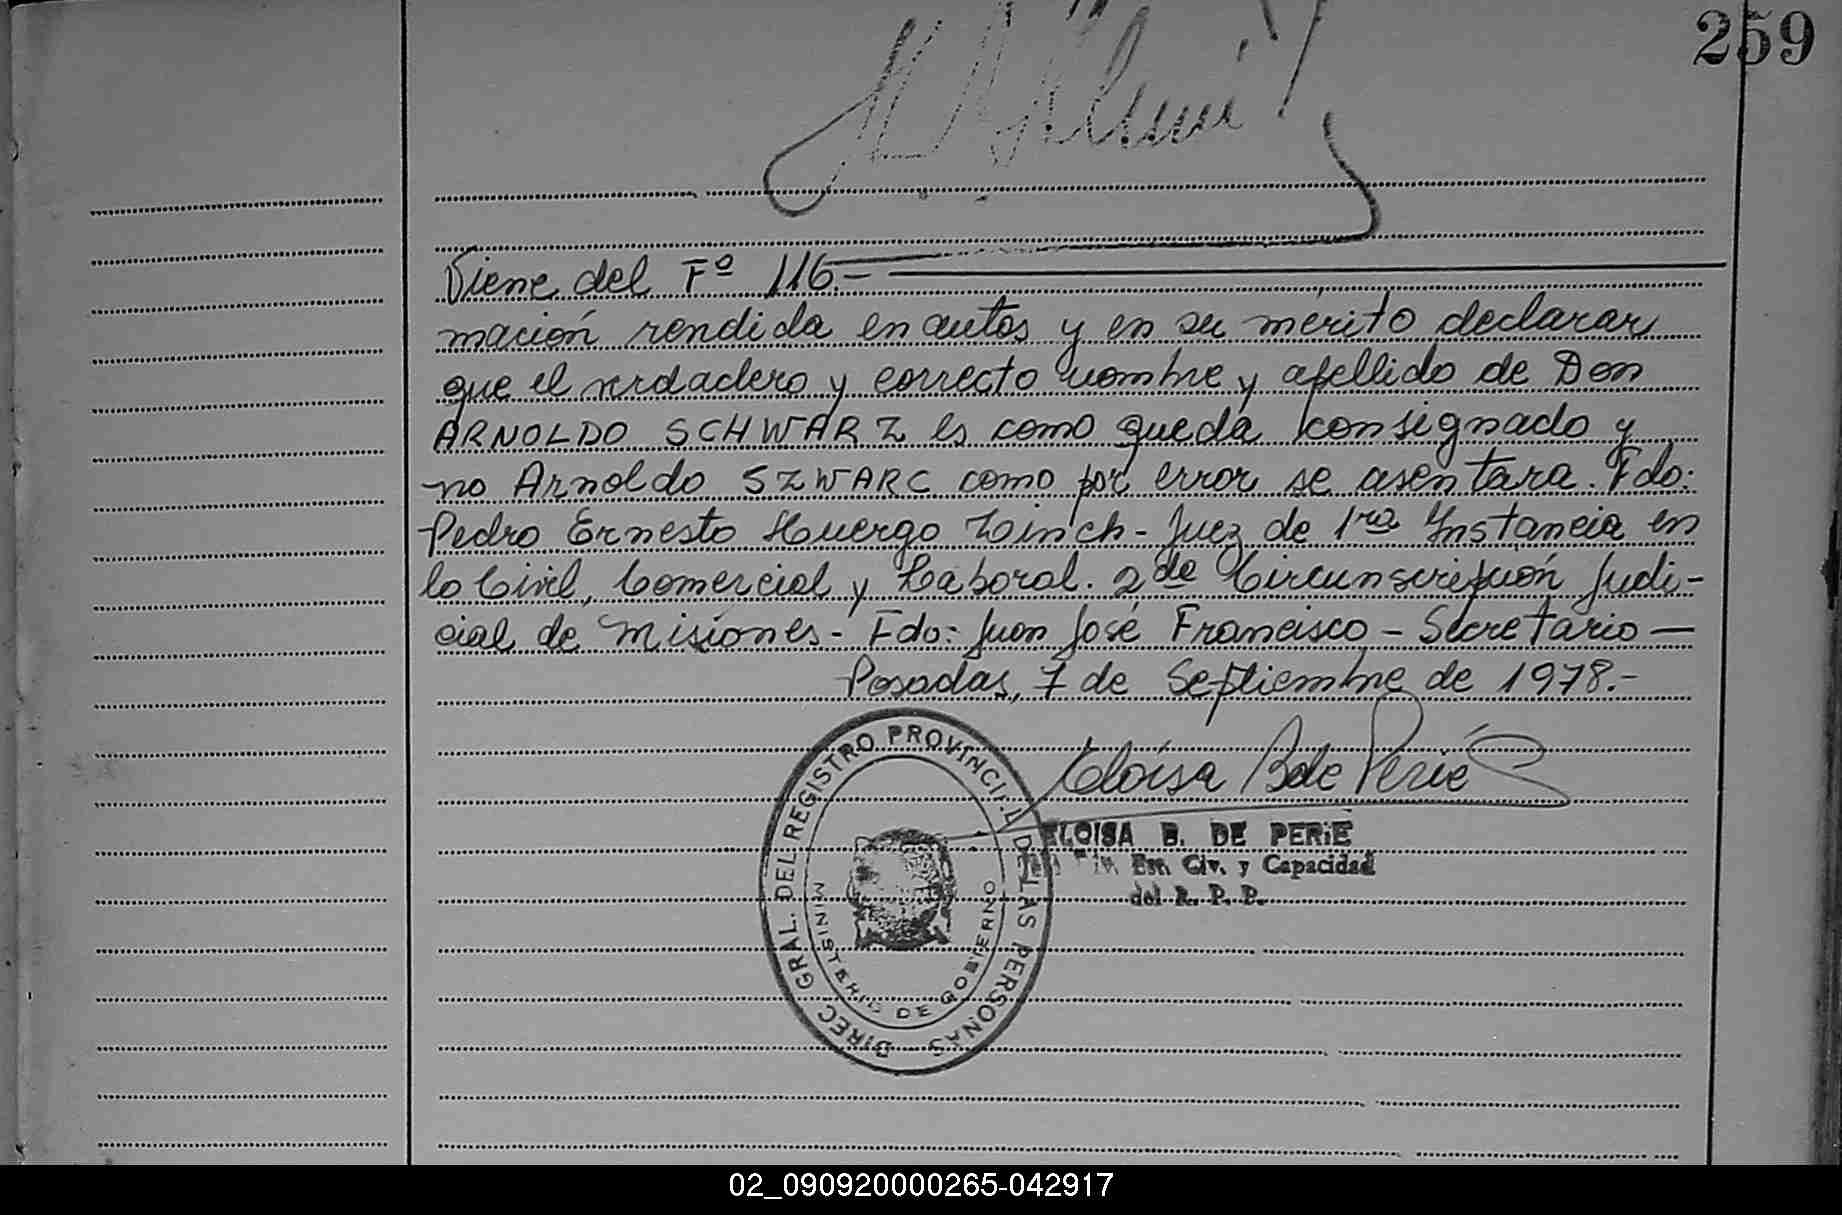 259
Viene del Fº 116.-
mación rendida en autos y en su mérito declarar
que el verdadero y correcto nombre y apellido de Don
ARNOLDO SCHWARZ es como queda consignado y
no Arnoldo SZWARC como por error se asentara. Fdo:
Pedro Ernesto Huergo Linch - Juez de 1ra Instancia en
lo Civil, Comercial y Laboral. 2da Circunscripción Judi-
cial de Misiones - Fdo: Juan José Francisco - Secretario -
Posadas, 7 de Septiembre de 1978.-
Eloisa B de Perié
ELOISA B. DE PERIE
Est. Civ. y Capacidad
del R. P. P.
DIREC. GRAL. DEL REGISTRO PROVINCIAL DE LAS PERSONAS
MINISTERIO DE GOBIERNO
02_090920000265-042917